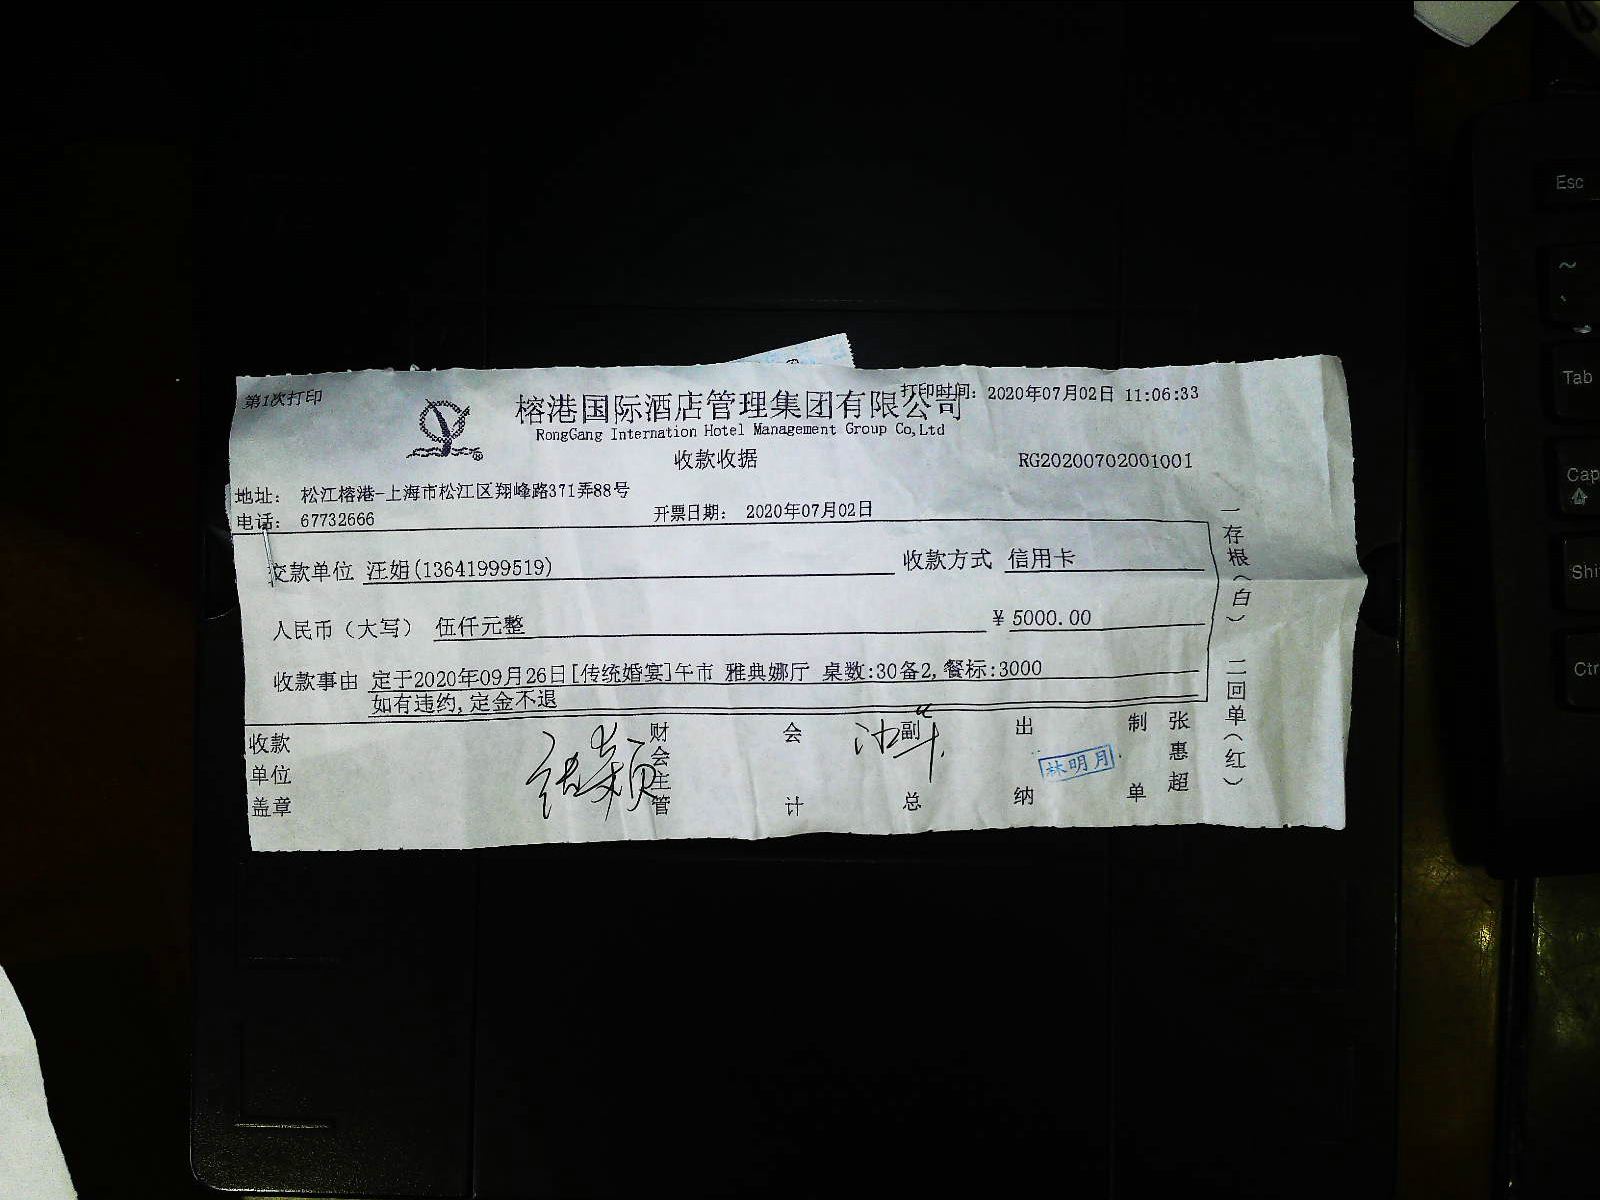 第1次打印
打印时间: 2020年07月02日 11:06:33
榕港国际酒店管理集团有限公司
RongGang Internation Hotel Management Group Co,Ltd
收款收据
RG20200702001001
地址: 松江榕港-上海市松江区翔峰路371弄88号
电话: 67732666
开票日期: 2020年07月02日
交款单位 汪娟(13641999519)
收款方式 信用卡
人民币（大写） 伍仟元整
¥ 5000.00
收款事由 定于2020年09月26日[传统婚宴]午市 雅典娜厅 桌数:30备2,餐标:3000
如有违约,定金不退
收款单位盖章
财会主管
会计
副总
出纳
林明月
制单
张惠超
一存根(白)
二回单(红)
Esc
~
Tab
Cap
Shi
Ctr